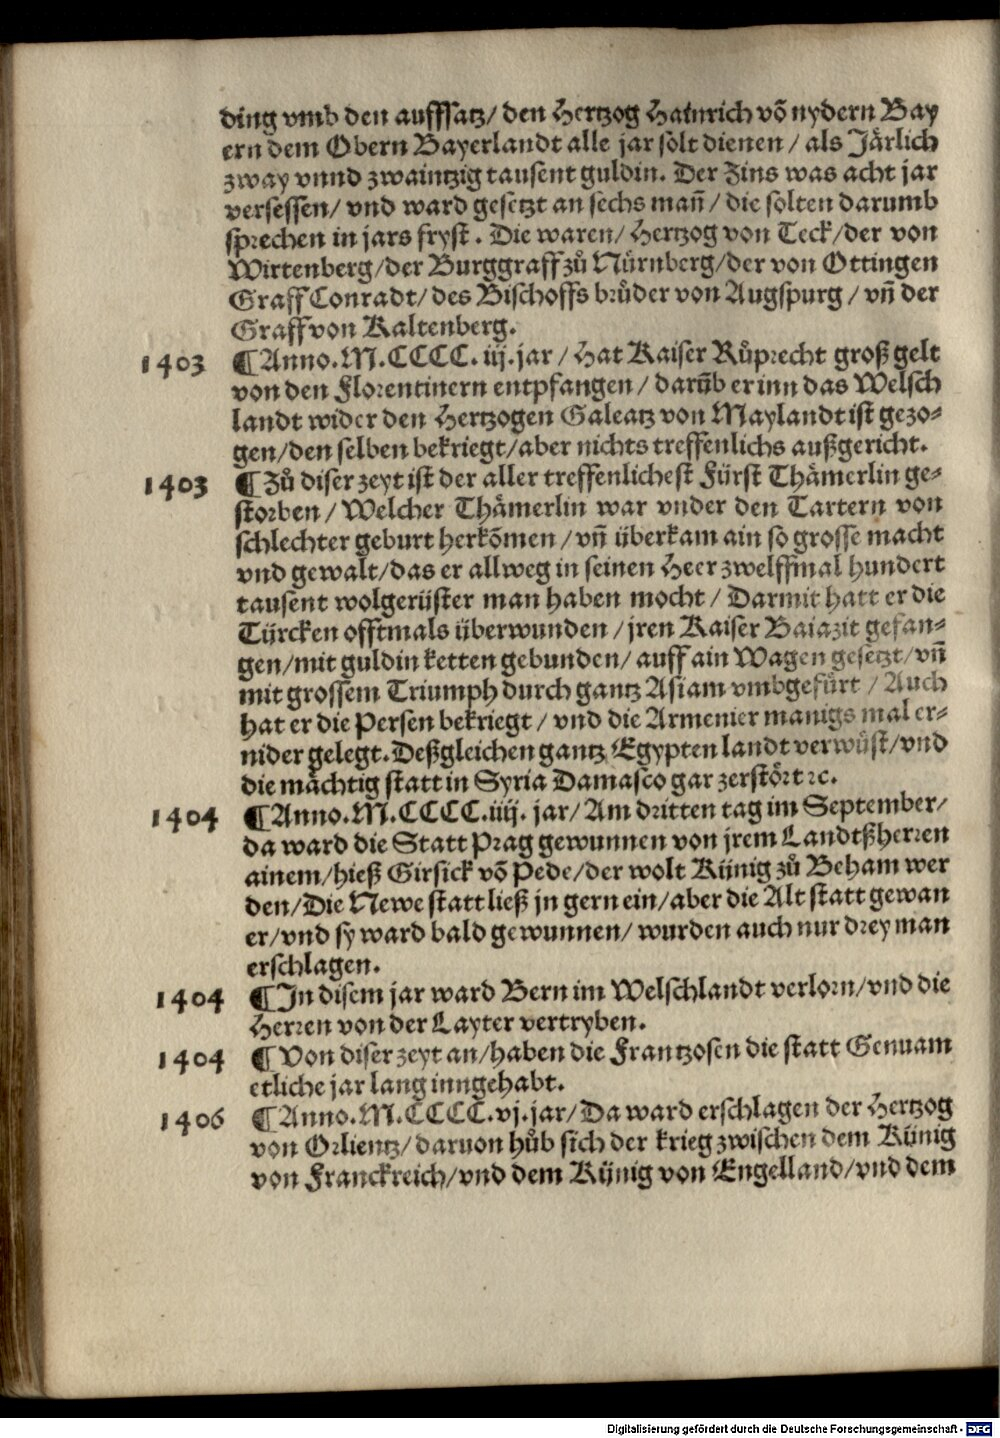 ding vmb den aufffsatz/ den Hertzog Hainrich võ nydern Bay
ern dem Obern Bayerlandt alle jar solt dienen / als Järlich
zway vnnd zwaintzig tausent guldin. Der Zins was acht jar
versessen/ vnd ward gesetzt an sechs mañ / die solten darumb
sprechen in jars fryst. Die waren/ Hertzog von Teck/ der von
Wirtenberg/der Burggraff zů Nürnberg/der von Ottingen
Graff Conradt/ des Bischoffs brůder von Augspurg / vñ der
Graff von Kaltenberg.
1403 ¶ Anno. M. CCCC. iij. jar / Hat Kaiser Růprecht groß gelt
von den Florentinern entpfangen / darũb er inn das Welsch
landt wider den Hertzogen Galeatz von Maylandt ist gezo-
gen/den selben bekriegt/aber nichts treffenlichs außgericht.
1403 ¶ Zů diser zeyt ist der aller treffenlichest Fürst Thämerlin ge-
storben / Welcher Thämerlin war vnder den Tartern von
schlechter geburt herkõmen / vñ überkam ain so grosse macht
vnd gewalt/das er allweg in seinen Heer zwelffmal hundert
tausent wolgerüster man haben mocht / Darmit hatt er die
Türcken offtmals überwunden / jren Kaiser Baiazit gefan-
gen/mit guldin ketten gebunden/ auff ain Wagen gesetzt/vñ
mit grossem Triumph durch gantz Asiam vmbgefürt / Auch
hat er die Persen bekriegt / vnd die Armenier manigs mal er-
nider gelegt. Deßgleichen gantz Egypten landt verwüst/vnd
die mächtig statt in Syria Damasco gar zerstört ꝛc.
1404 ¶ Anno. M. CCCC. iiij. jar/ Am dritten tag im September/
da ward die Statt Prag gewunnen von jrem Landtßherren
ainem/hieß Girsick võ Pede/der wolt Künig zů Beham wer
den/Die Newe statt ließ jn gern ein/aber die Alt statt gewan
er/vnd sy ward bald gewunnen/ wurden auch nur drey man
erschlagen.
1404 ¶ In disem jar ward Bern im Welschlandt verlorn/vnd die
Herren von der Layter vertryben.
1404 ¶ Von diser zeyt an/haben die Frantzosen die statt Genuam
etliche jar lang inngehabt.
1406 ¶ Anno. M. CCCC. vj. jar/ Da ward erschlagen der Hertzog
von Orlientz/ daruon hůb sich der krieg zwischen dem Künig
von Franckreich/vnd dem Künig von Engelland/vnd dem
Digitalisierung gefördert durch die Deutsche Forschungsgemeinschaft - DFG